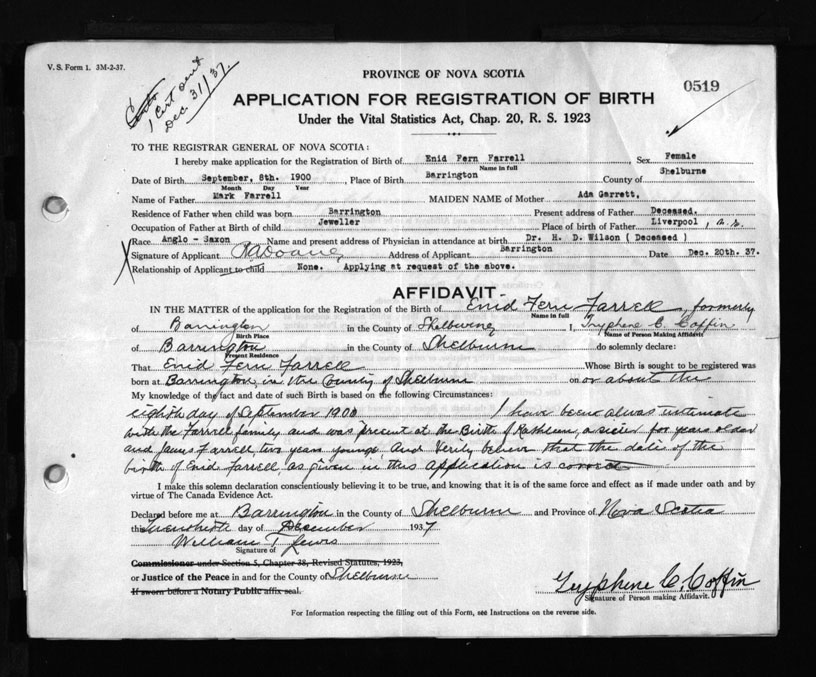 V. S. Form 1. 3M-2-37.
1 Cert sent
Dec 31/37.
PROVINCE OF NOVA SCOTIA
0519
APPLICATION FOR REGISTRATION OF BIRTH
Under the Vital Statistics Act, Chap. 20, R. S. 1923
TO THE REGISTRAR GENERAL OF NOVA SCOTIA:
I hereby make application for the Registration of Birth of Enid Fern Farrell Sex Female
Name in full
Date of Birth September, 8th. 1900, Place of Birth Barrington County of Shelburne
Month Day Year
Name of Father Mark Farrell MAIDEN NAME of Mother Ada Garrett,
Residence of Father when child was born Barrington Present address of Father Deceased.
Occupation of Father at Birth of child Jeweller Place of birth of Father Liverpool, n.s.
Race Anglo - Saxon Name and present address of Physician in attendance at birth Dr. H. D. Wilson ( Deceased )
X Signature of Applicant Address of Applicant Barrington Date Dec. 20th. 37.
Relationship of Applicant to child None. Applying at request of the above.
AFFIDAVIT
IN THE MATTER of the application for the Registration of the Birth of Enid Fern Farrell, formerly
Name in full
of Barrington in the County of Shelburne I, Tryphene C. Coffin
Birth Place Name of Person Making Affidavit
of Barrington in the County of Shelburne do solemnly declare:
Present Residence
That Enid Fern Farrell Whose Birth is sought to be registered was
born at Barrington, in the County of Shelburne on or about the
My knowledge of the fact and date of such Birth is based on the following Circumstances:
eighth day of September 1900 I have been alwas intimate
with the Farrell family and was present at the Birth of Kathleen, a sister for years older
and James Farrell two years younge. And Verily believe that the date of the
birth of Enid Farrell as given in this application is correct
I make this solemn declaration conscientiously believing it to be true, and knowing that it is of the same force and effect as if made under oath and by
virtue of The Canada Evidence Act.
Declared before me at Barrington in the County of Shelburne and Province of Nova Scotia
this Twentieth day of December 1937
William T Lewis
Signature of
Commissioner under Section 5, Chapter 38, Revised Statutes, 1923,
or Justice of the Peace in and for the County of Shelburne
If sworn before a Notary Public affix seal.
Tryphene C. Coffin
Signature of Person making Affidavit.
For Information respecting the filling out of this Form, see Instructions on the reverse side.